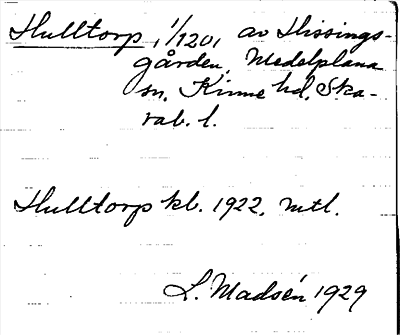 Hulltorp, 1/120, av Hissings-
gården, Medelplana
sn, Kinne hd, Ska-
rab. l.
Hulltorp kb. 1922. mtl.
L. Madsén 1929